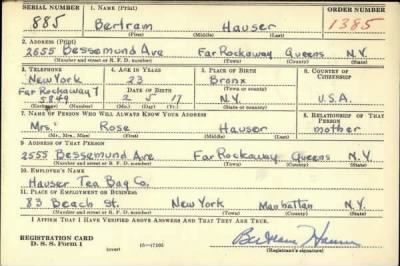 SERIAL NUMBER 1. NAME (Print) ORDER NUMBER
885 Bertram Hauser 1385
(First) (Middle) (Last)
2. ADDRESS (Print)
2555 Bessemund Ave Far Rockaway Queens N.Y.
(Number and street or R. F. D. number) (Town) (County) (State)
3. TELEPHONE 4. AGE IN YEARS 5. PLACE OF BIRTH 6. COUNTRY OF CITIZENSHIP
New York 23 Bronx
Far Rockaway 7 DATE OF BIRTH (Town or county)
5849 2 5 17 N.Y. U.S.A.
(Exchange) (No.) (Mo.) (Day) (Yr.) (State or country)
7. NAME OF PERSON WHO WILL ALWAYS KNOW YOUR ADDRESS 8. RELATIONSHIP OF THAT PERSON
Mrs. Rose Hauser mother
(Mr., Mrs., Miss) (First) (Middle) (Last)
9. ADDRESS OF THAT PERSON
2555 Bessemund Ave. Far Rockaway Queens N.Y.
(Number and street or R. F. D. number) (Town) (County) (State)
10. EMPLOYER'S NAME
Hauser Tea Bag Co.
11. PLACE OF EMPLOYMENT OR BUSINESS
83 Beach St. New York Manhattan N.Y.
(Number and street or R. F. D. number) (Town) (County) (State)
I AFFIRM THAT I HAVE VERIFIED ABOVE ANSWERS AND THAT THEY ARE TRUE.
REGISTRATION CARD
D. S. S. Form 1 (over) 16—17105 Bertram Hauser